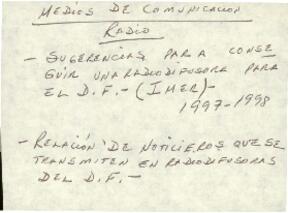 MEDIOS DE COMUNICACION
RADIO
- SUGERENCIAS PARA CONSE
GUIR UNA RADIODIFUSORA PARA
EL D.F. - (IMER) -
1997-1998
- RELACIÓN DE NOTICIEROS QUE SE
TRANSMITEN EN RADIODIFUSORAS
DEL D.F. -